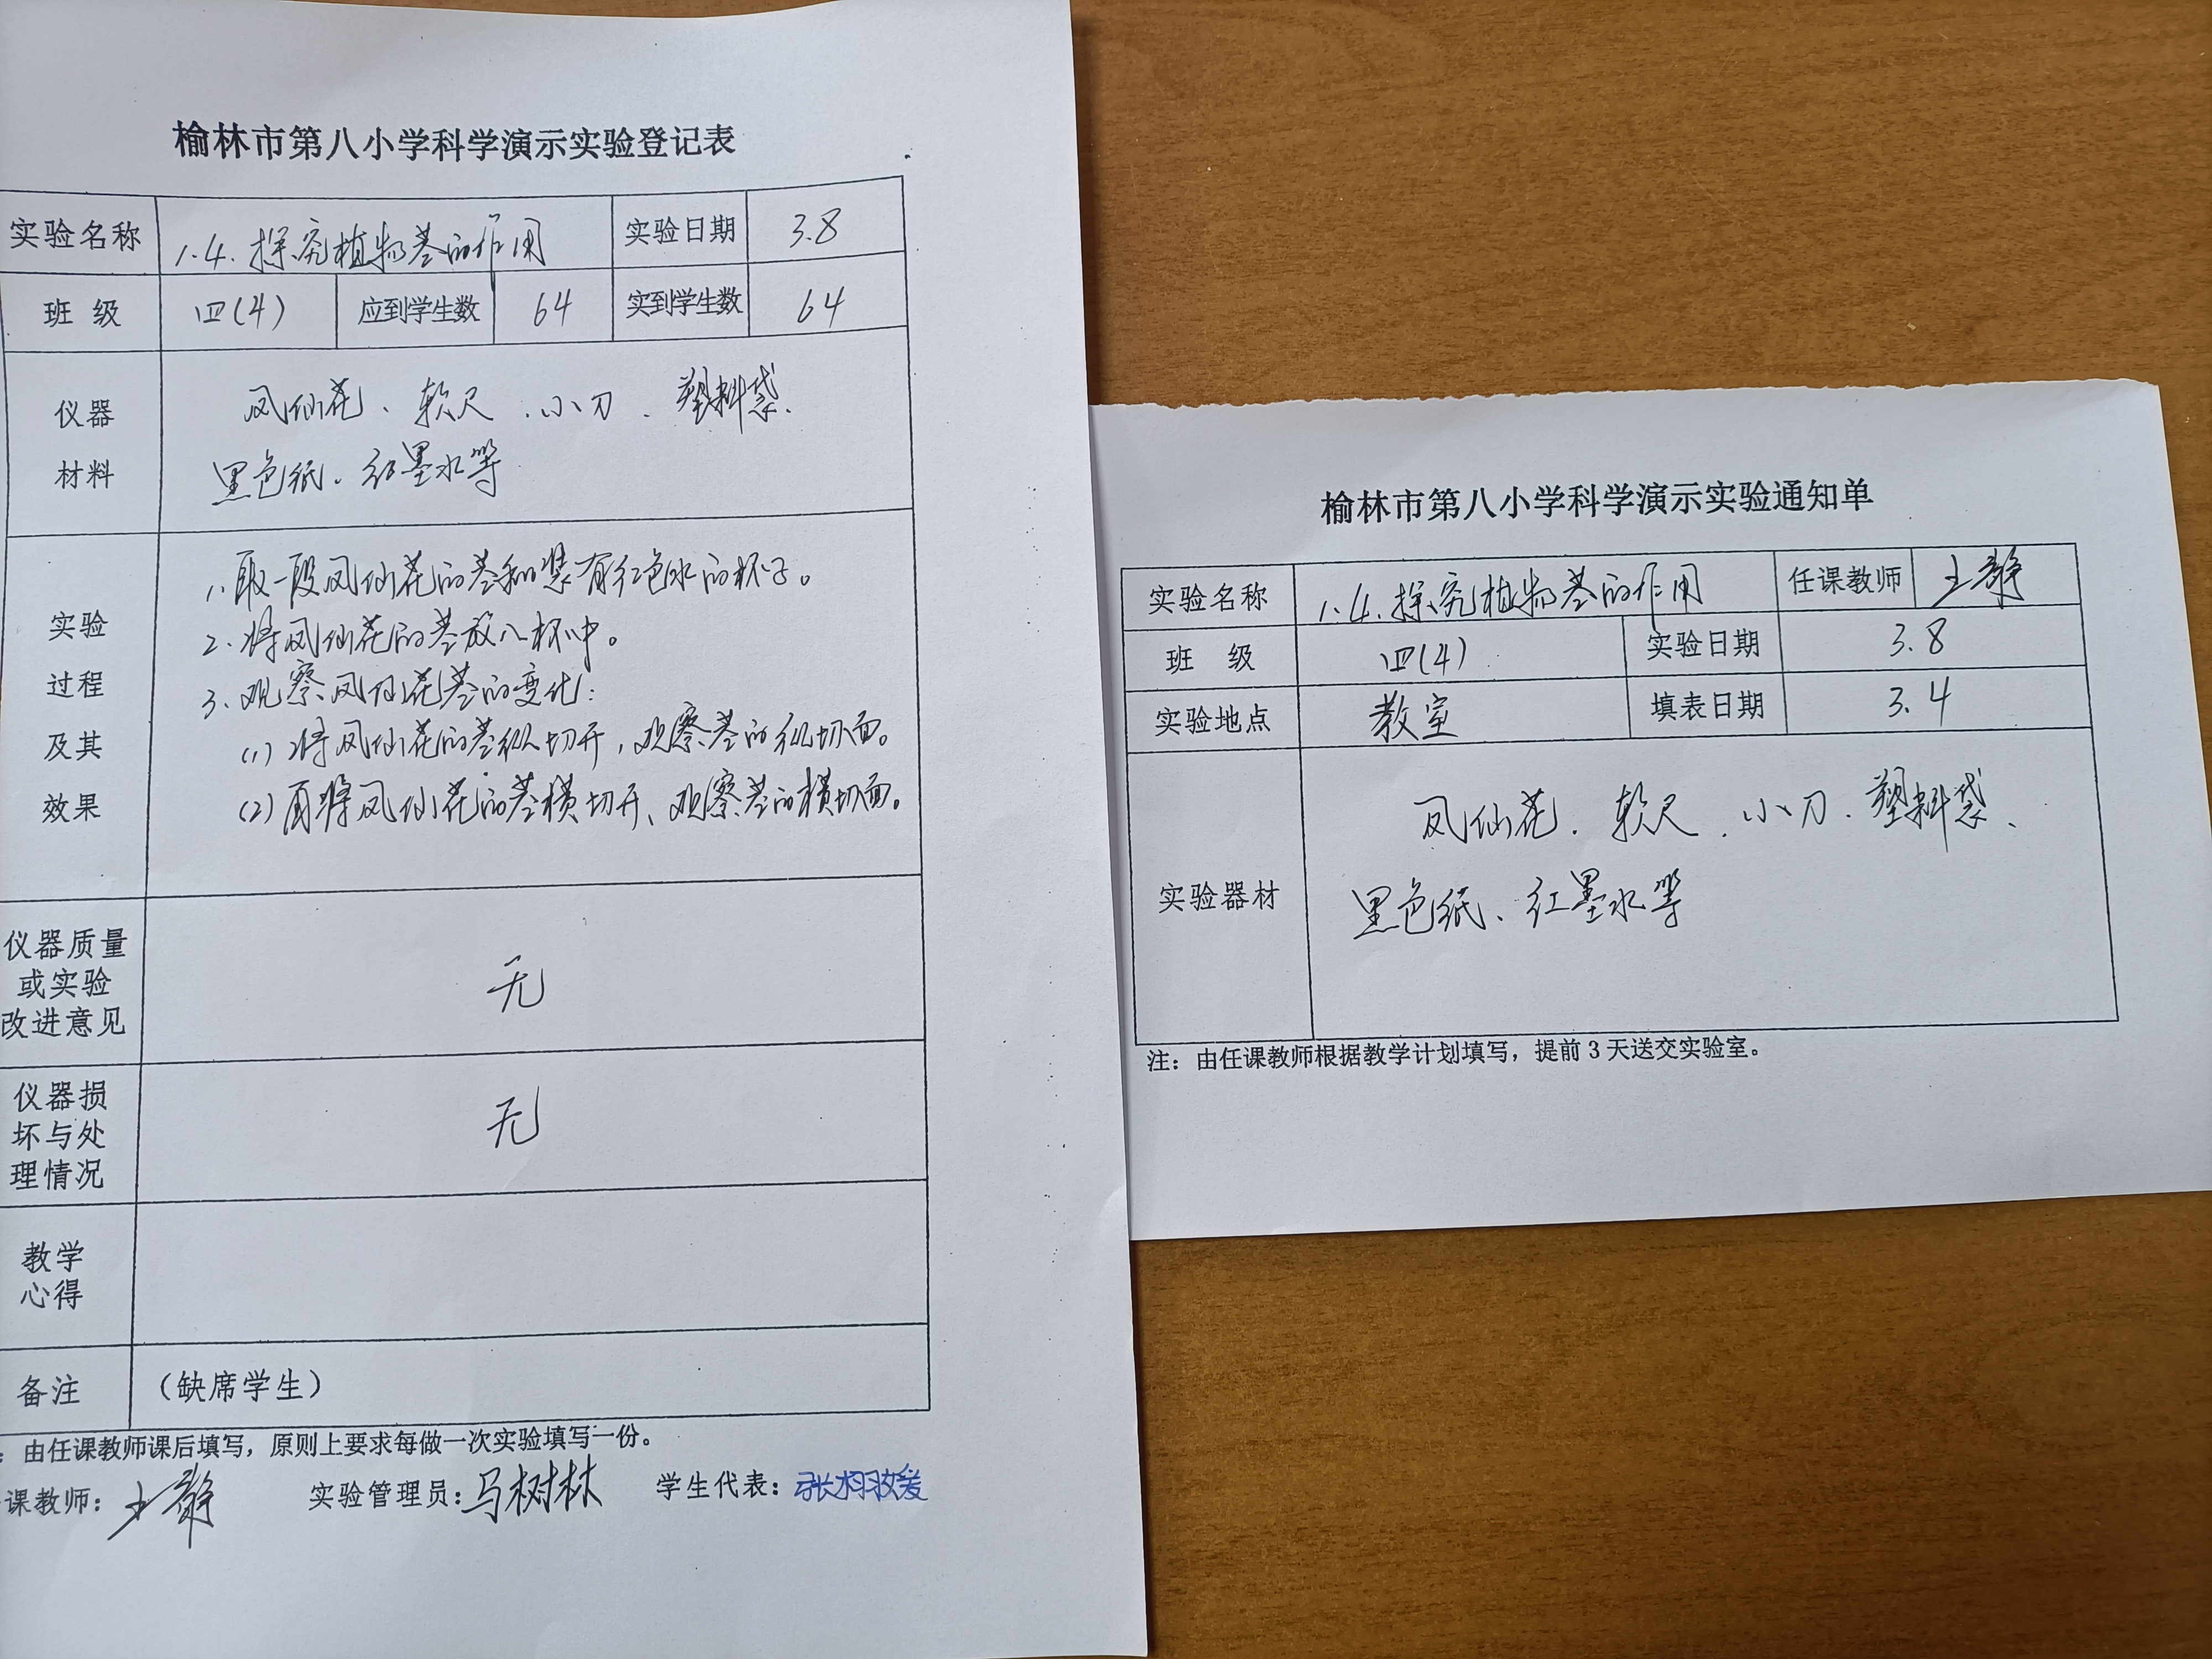 榆林市第八小学科学演示实验登记表
实验名称 1.4.探究植物茎的作用 实验日期 3.8
班 级 四(4) 应到学生数 64 实到学生数 64
仪器 凤仙花、软尺、小刀、塑料袋、
材料 黑色纸、红墨水等
实验
过程
及其
效果
1、取一段凤仙花的茎和装有红色水的杯子。
2、将凤仙花的茎放入杯中。
3、观察凤仙花茎的变化:
(1)将凤仙花的茎纵切开,观察茎的纵切面。
(2)再将凤仙花的茎横切开、观察茎的横切面。
仪器质量
或实验
改进意见
无
仪器损
坏与处
理情况
无
教学
心得
备注 (缺席学生)
:由任课教师课后填写,原则上要求每做一次实验填写一份。
课教师: 王静 实验管理员: 马树林 学生代表: 张
榆林市第八小学科学演示实验通知单
实验名称 1.4.探究植物茎的作用 任课教师 王静
班 级 四(4) 实验日期 3.8
实验地点 教室 填表日期 3.4
实验器材
凤仙花、软尺、小刀、塑料袋、
黑色纸、红墨水等
注:由任课教师根据教学计划填写,提前3天送交实验室。